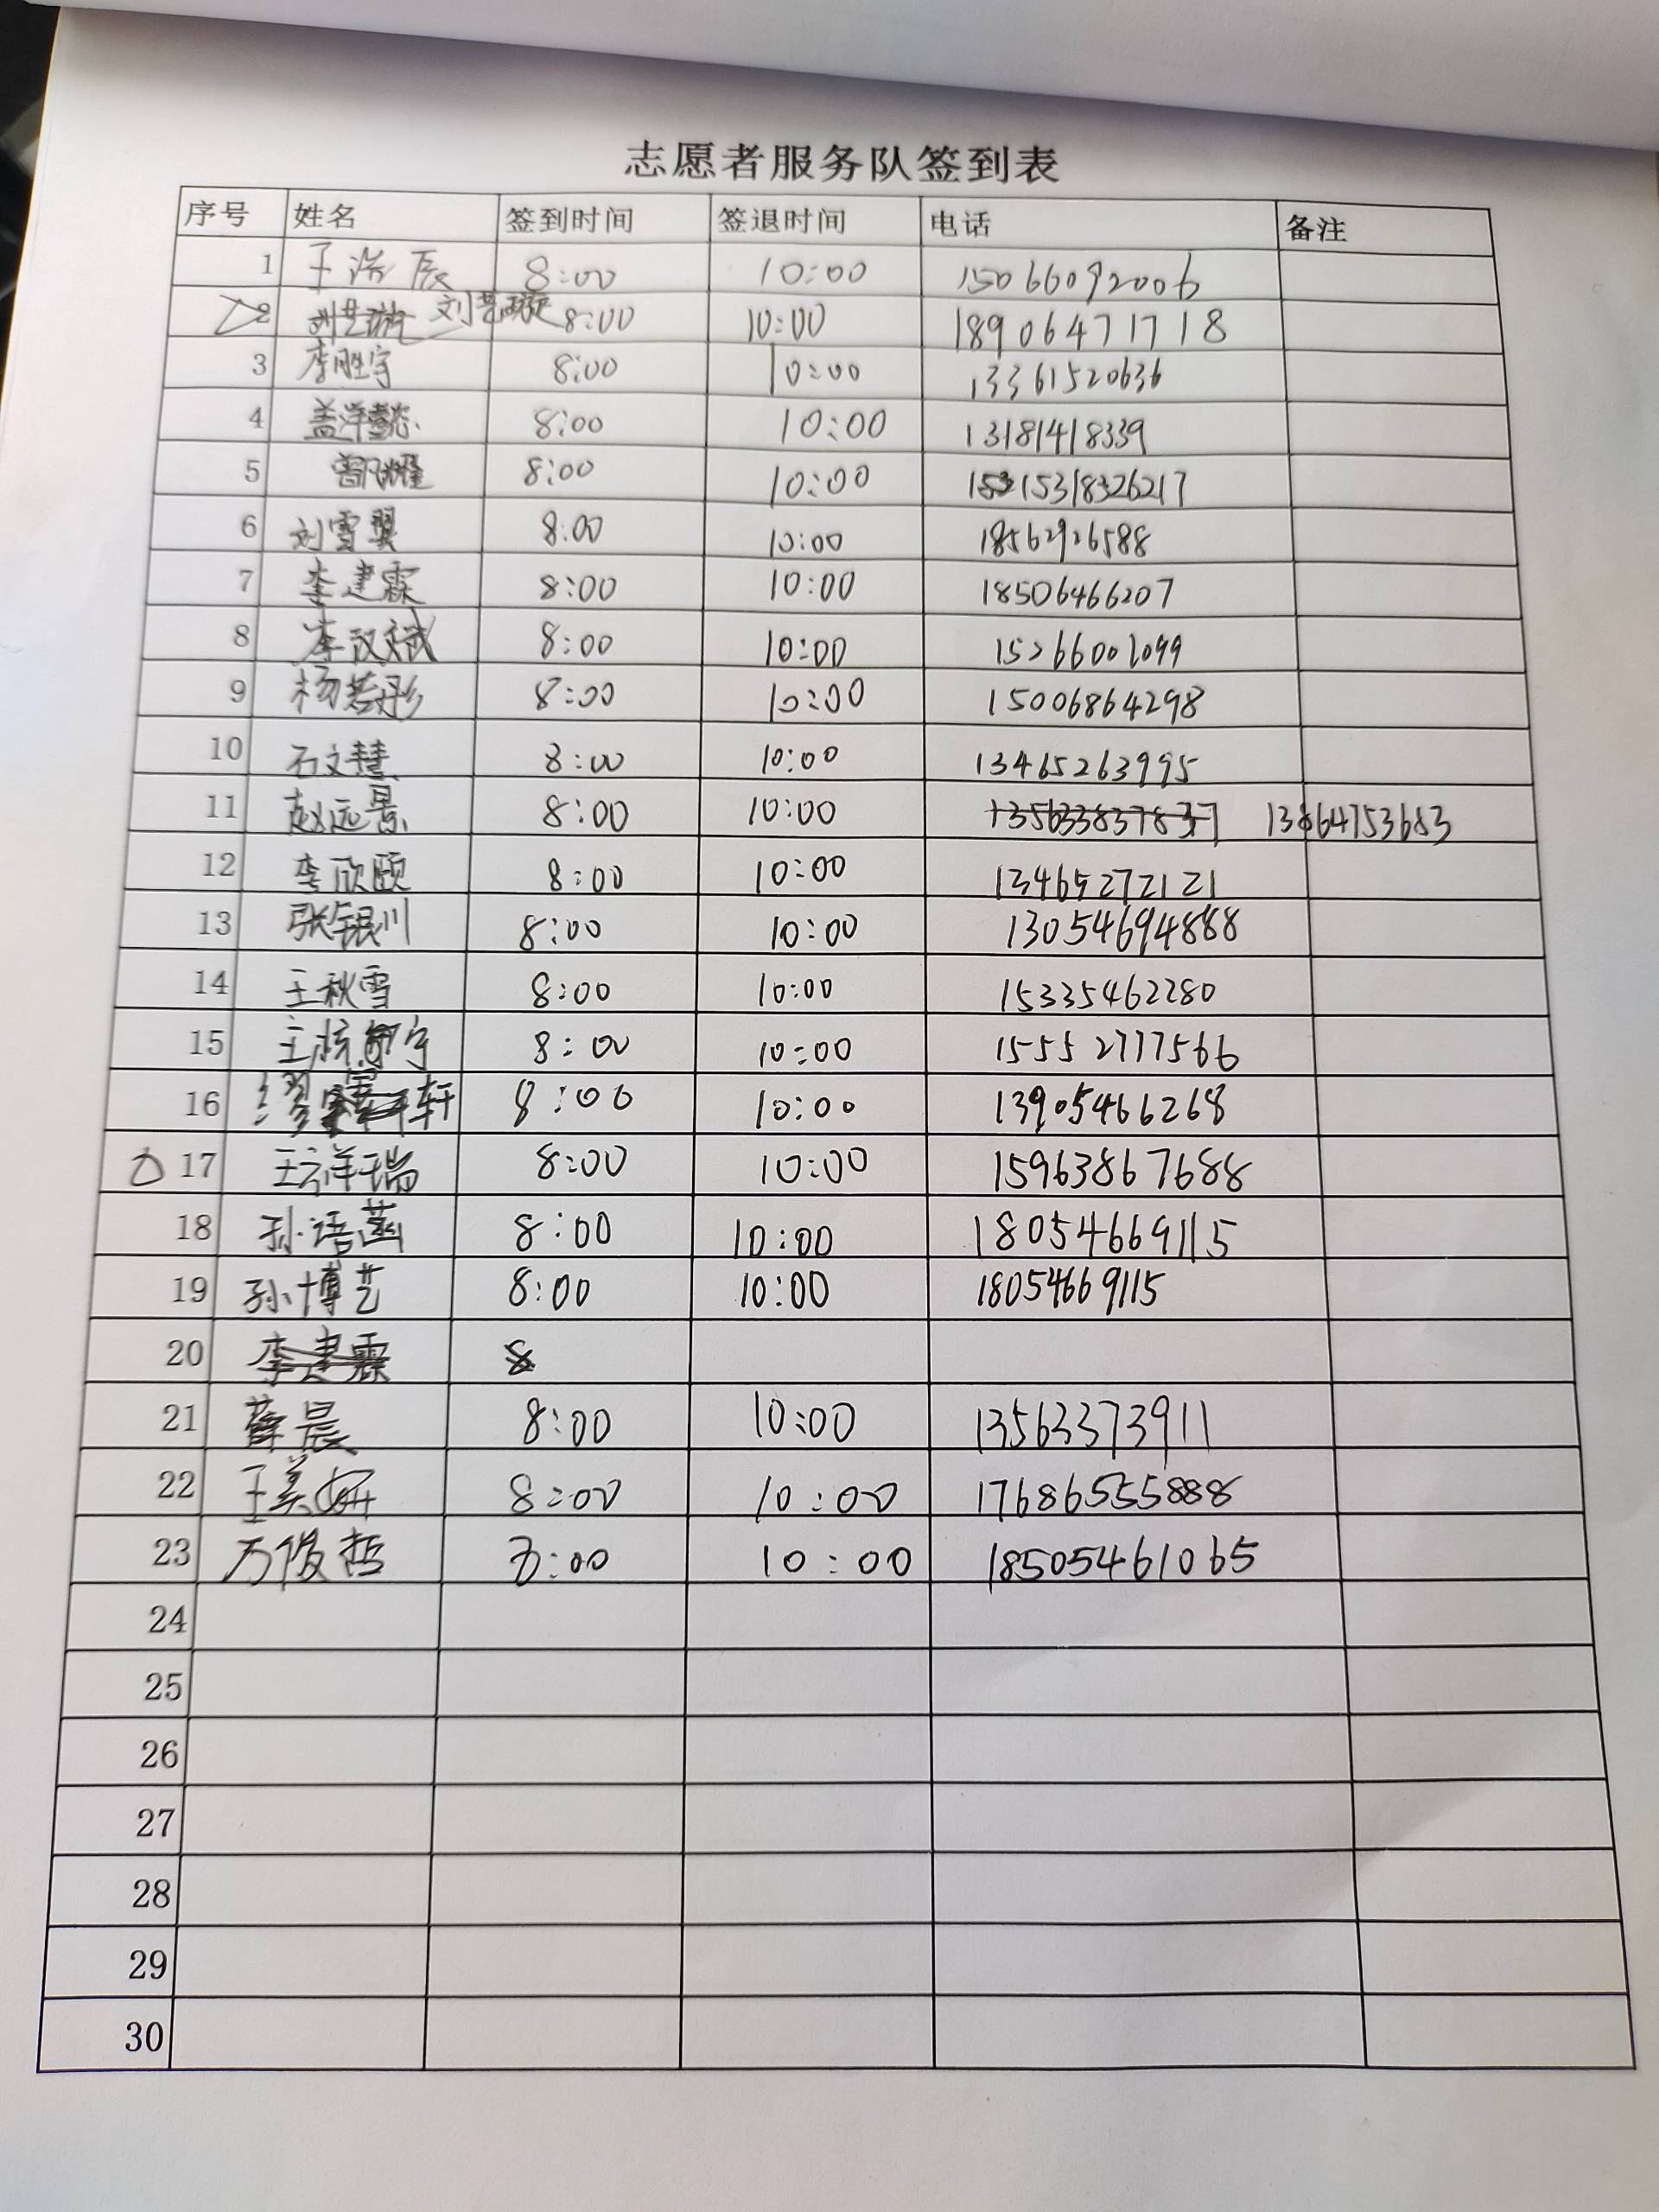 志愿者服务队签到表
序号 姓名 签到时间 签退时间 电话 备注
1 王浩辰 8:00 10:00 15066092006
2 刘艺璇 8:00 10:00 18906471718
3 李胜宇 8:00 10:00 13361520636
4 盖洋懿 8:00 10:00 13181418339
5 曾凡耀 8:00 10:00 15318326217
6 刘雪翼 8:00 10:00 18562926588
7 李建霖 8:00 10:00 18506466207
8 李汶斌 8:00 10:00 15266001099
9 杨若彤 8:00 10:00 15006864298
10 石文慧 8:00 10:00 13465263995
11 赵远景 8:00 10:00 135633837837 13864753683
12 李欣颐 8:00 10:00 13465272121
13 张银川 8:00 10:00 13054694888
14 王秋雪 8:00 10:00 15335462280
15 王梓宇 8:00 10:00 15552777566
16 缪轩 8:00 10:00 13905466268
17 王祥瑞 8:00 10:00 15963867688
18 孙语菡 8:00 10:00 18054669115
19 孙博艺 8:00 10:00 18054669115
20 李建霖 8
21 薛晨 8:00 10:00 13563373911
22 王美妍 8:00 10:00 17686555888
23 万俊哲 8:00 10:00 18505461065
24
25
26
27
28
29
30